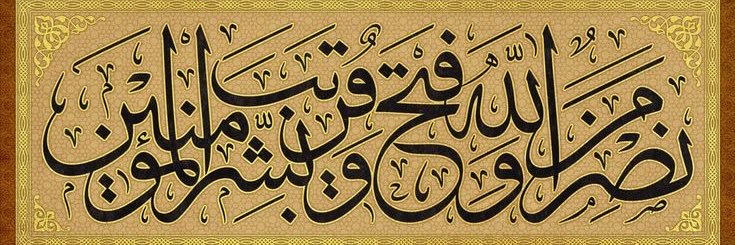 نَصْرٌ مِنَ اللّٰهِ وَفَتْحٌ قَرِيبٌ وَبَشِّرِ الْمُؤْمِنِينَ